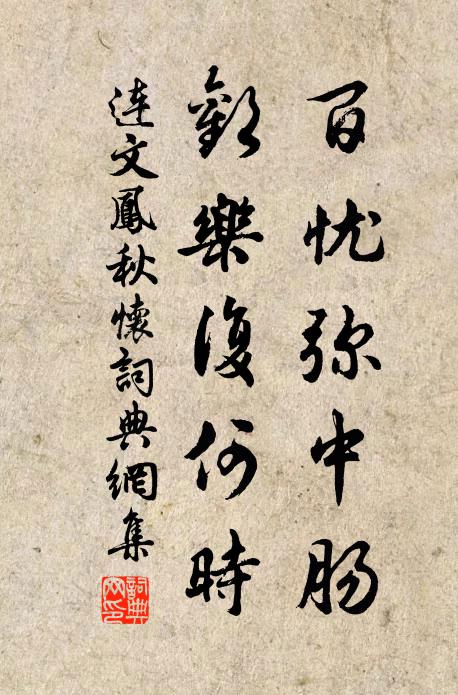 百忧弥中肠
歡樂復何時
連文鳳秋懷詞典網集
詞典网印